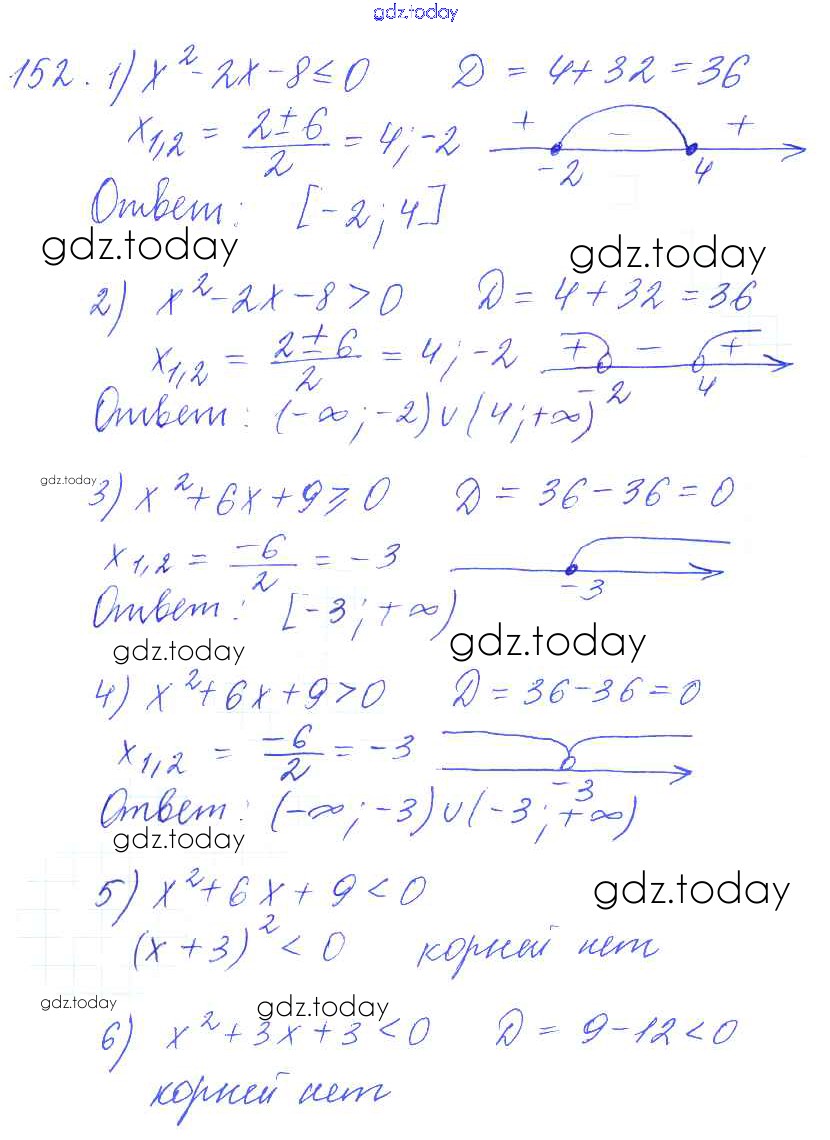 gdz.today
152. 1) x² - 2x - 8 ≤ 0 D = 4 + 32 = 36
x₁,₂ = (2 ± 6)/2 = 4; -2 + - + -2 4
Ответ: [-2; 4]
gdz.today gdz.today
2) x² - 2x - 8 > 0 D = 4 + 32 = 36
x₁,₂ = (2 ± 6)/2 = 4; -2 + - + -2 4
Ответ: (-∞; -2) ∪ (4; +∞)
gdz.today 3) x² + 6x + 9 ≥ 0 D = 36 - 36 = 0
x₁,₂ = -6/2 = -3 -3
Ответ: [-3; +∞)
gdz.today gdz.today
4) x² + 6x + 9 > 0 D = 36 - 36 = 0
x₁,₂ = -6/2 = -3 -3
Ответ: (-∞; -3) ∪ (-3; +∞)
gdz.today
5) x² + 6x + 9 < 0 gdz.today
(x + 3)² < 0 корней нет
gdz.today gdz.today
6) x² + 3x + 3 < 0 D = 9 - 12 < 0
корней нет